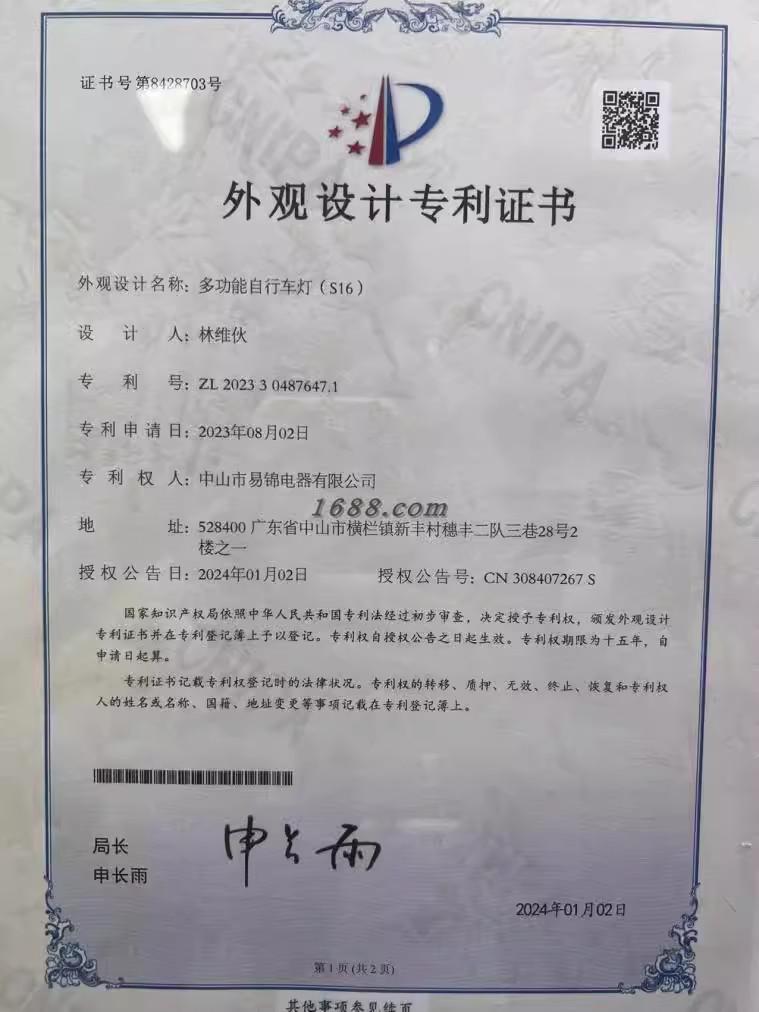 证书号第8428703号
外观设计专利证书
外观设计名称：多功能自行车灯（S16）
设计人：林维伙
专利号：ZL 2023 3 0487647.1
专利申请日：2023年08月02日
专利权人：中山市易锦电器有限公司
1688.com
地址：528400 广东省中山市横栏镇新丰村穗丰二队三巷28号2
楼之一
授权公告日：2024年01月02日 授权公告号：CN 308407267 S
国家知识产权局依照中华人民共和国专利法经过初步审查，决定授予专利权，颁发外观设计
专利证书并在专利登记簿上予以登记。专利权自授权公告之日起生效。专利权期限为十五年，自
申请日起算。
专利证书记载专利权登记时的法律状况。专利权的转移、质押、无效、终止、恢复和专利权
人的姓名或名称、国籍、地址变更等事项记载在专利登记簿上。
局长
申长雨
申长雨
2024年01月02日
第1页（共2页）
其他事项参见续页
CNIPA
CNIPA